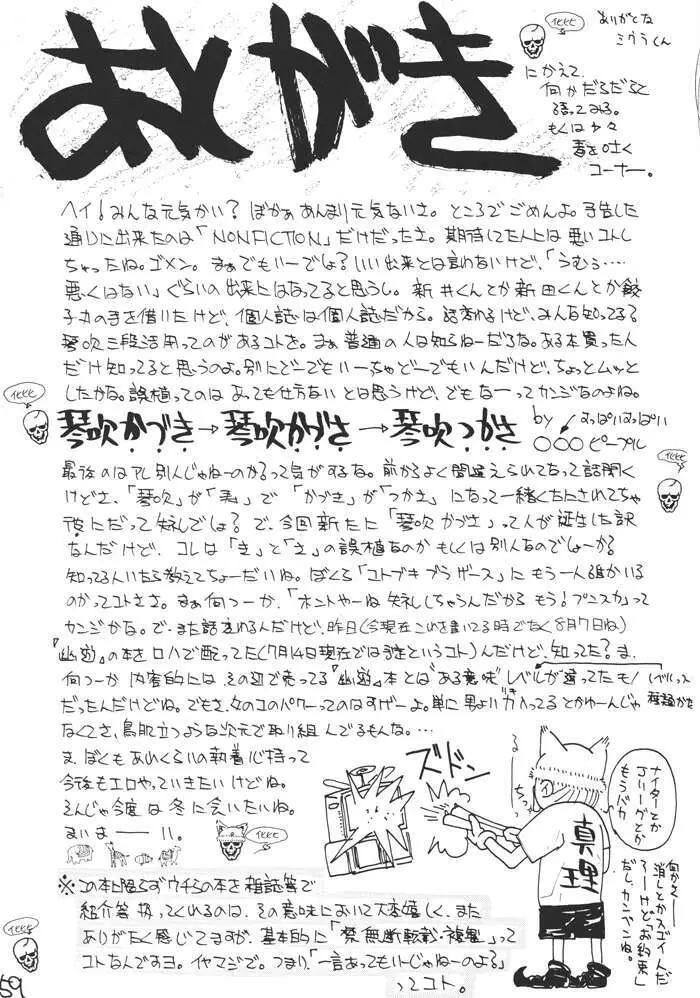 あとがき
ケケケ
ありがとな
ミウラくん
にかえて、
何かだらだらと
語ってみる。
もしくは少々
毒を吐く
コーナー。
ヘイ!みんな元気かい? ぼかぁあんまり元気ないさ。ところでごめんよ。予告した
通りに出来たのは「NONFICTION」だけだったさ。期待してた人には悪いコトし
ちゃったね。ゴメン。まぁでもいーでしょ?いい出来とは言わないけど、「うむぅ‥‥
悪くはない」ぐらいの出来にはなってると思うし。新井くんとか新田くんとか餃
子の手を借りたけど、個人誌は個人誌だから。話変わるけど、みんな知ってる?
琴吹三段活用ってのがあるコトを。まぁ普通の人は知らねーだろな。ある本買った人
だけ知ってると思うのよ。別にどーでもいーちゃどーでもいんだけど、ちょっとムッと
したかな。誤植ってのはあっても仕方ないとは思うけど、でもなーってカンジなのよね。
ケケケ
琴吹かづき→琴吹かづさ→琴吹つかさ
by すっぱいすっぱい
○○○ピープル
ケケケ
最後のはアレ別人じゃねーのか?って気がするな。前からよく間違えられてなって話聞く
けどさ、「琴吹」が「 」で「かづき」が「つかさ」になって一緒くたにされてちゃ
彼にだって失礼でしょ?で、今回新たに「琴吹かづさ」って人が誕生した訳
なんだけど、コレは「き」と「さ」の誤植なのかもしくは別人なのでしょーか?
知ってる人いたら教えてちょーだいね。ぼくら「コトブキブラザース」にもう一人誰かいる
のかってコトさ。まぁ何つーか、「ホントやーね失礼しちゃうんだからもう!プンスカ」って
カンジかな。で、また話変わるんだけど、昨日(今現在これを書いてる時でなく8月7日ね)
『幽遊』の本をロハで配ってた(7月14日現在では予定というコト)んだけど、知ってた?ま、
何つーか内容的にはその辺で売ってる『幽遊』本とは“ある意味”レベルが違ってたモノ
だったんだけどね。でもさ、女のコのパワーってのはすげーよ。単に男より 入ってるとかゆーんじゃ
レベルって
なくてさ、鳥肌立つような次元で取り組んでるもんな。…
ま、ぼくもあれくらいの執着心持って
今後もエロやっていきたいけどね。
そんじゃ今度は冬に会いたいね。
まいまーーい。
ケケケ
ズドン
る
ちっ
ナイターとか
Jリーグとか
もうバカ
真理
何かさー
消しとかスゴイんだ
ろーけど「お約束」
だし、カンベンね。
※この本に限らずウチらの本を雑誌等で
紹介等扱ってくれるのは、その意味において大変嬉しく、また
ありがたく感じてますが、基本的に「禁・無断転載・複製」って
コトなんですヨ。イヤマジで。つまり、「一言あってもいーじゃねーのよる?」
ってコト。
ケケケ
59